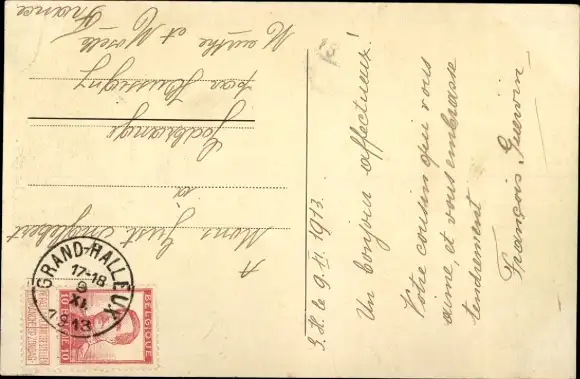 G.H. le 9. XI. 1913.
Un bonjour affectueux!
Votre cousin qui vous
aime, et vous embrasse
tendrement
François Guerin
A
Mons Just Englebert
à
Godbrange
par Hussigny
Meurthe et Moselle
France
GRAND-HALLEUX
17-18
9
XI
1913
BELGIQUE
10 10